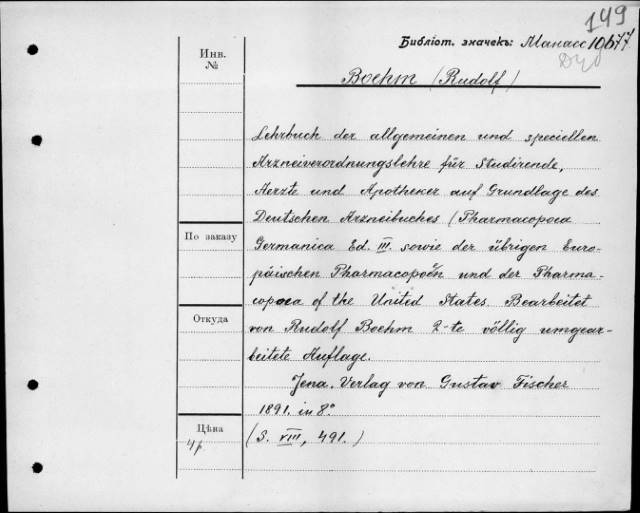 149
Библіот. значекъ: Манасс 10677
Инв.
№
Boehm (Rudolf)
Lehrbuch der allgemeinen und speciellen
Arzneiverordnungslehre für Studirende,
Aerzte und Apotheker auf Grundlage des
Deutschen Arzneibuches (Pharmacopoea
По заказу
Germanica Ed. III. sowie der übrigen Euro-
päischen Pharmacopoën und der Pharma-
copoea of the United States. Bearbeitet
Откуда
von Rudolf Boehm 2-te völlig umgear-
beitete Auflage.
Jena. Verlag von Gustav Fischer
1891. in 8°
Цѣна
4 р.
(S. VIII, 491.)